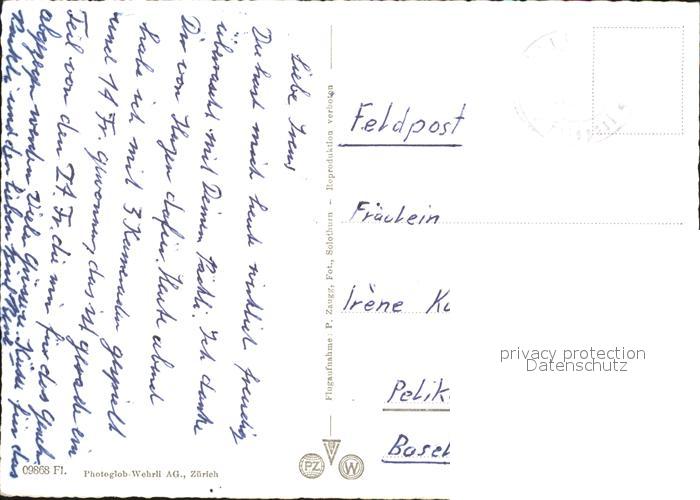 Liebe Irène
Du hast mich heute wirklich freudig
überrascht mit Deinem Päckli. Ich danke
Dir von Herzen dafür. Heute abend
habe ich mit 3 Kameraden gespielt
und 14 Fr. gewonnen, das ist gerade ein
Teil von den 24 Fr. die mir für das
abgezogen werden. Viele Grüsse + Küsse für das
Päckli und den lieben
Flugaufnahme: P. Zaugg, Fot., Solothurn – Reproduktion verboten
09868 Fl. Photoglob-Wehrli AG., Zürich
PZ W
Feldpost
Fräulein
Irène
Pelik
Basel
privacy protection
Datenschutz